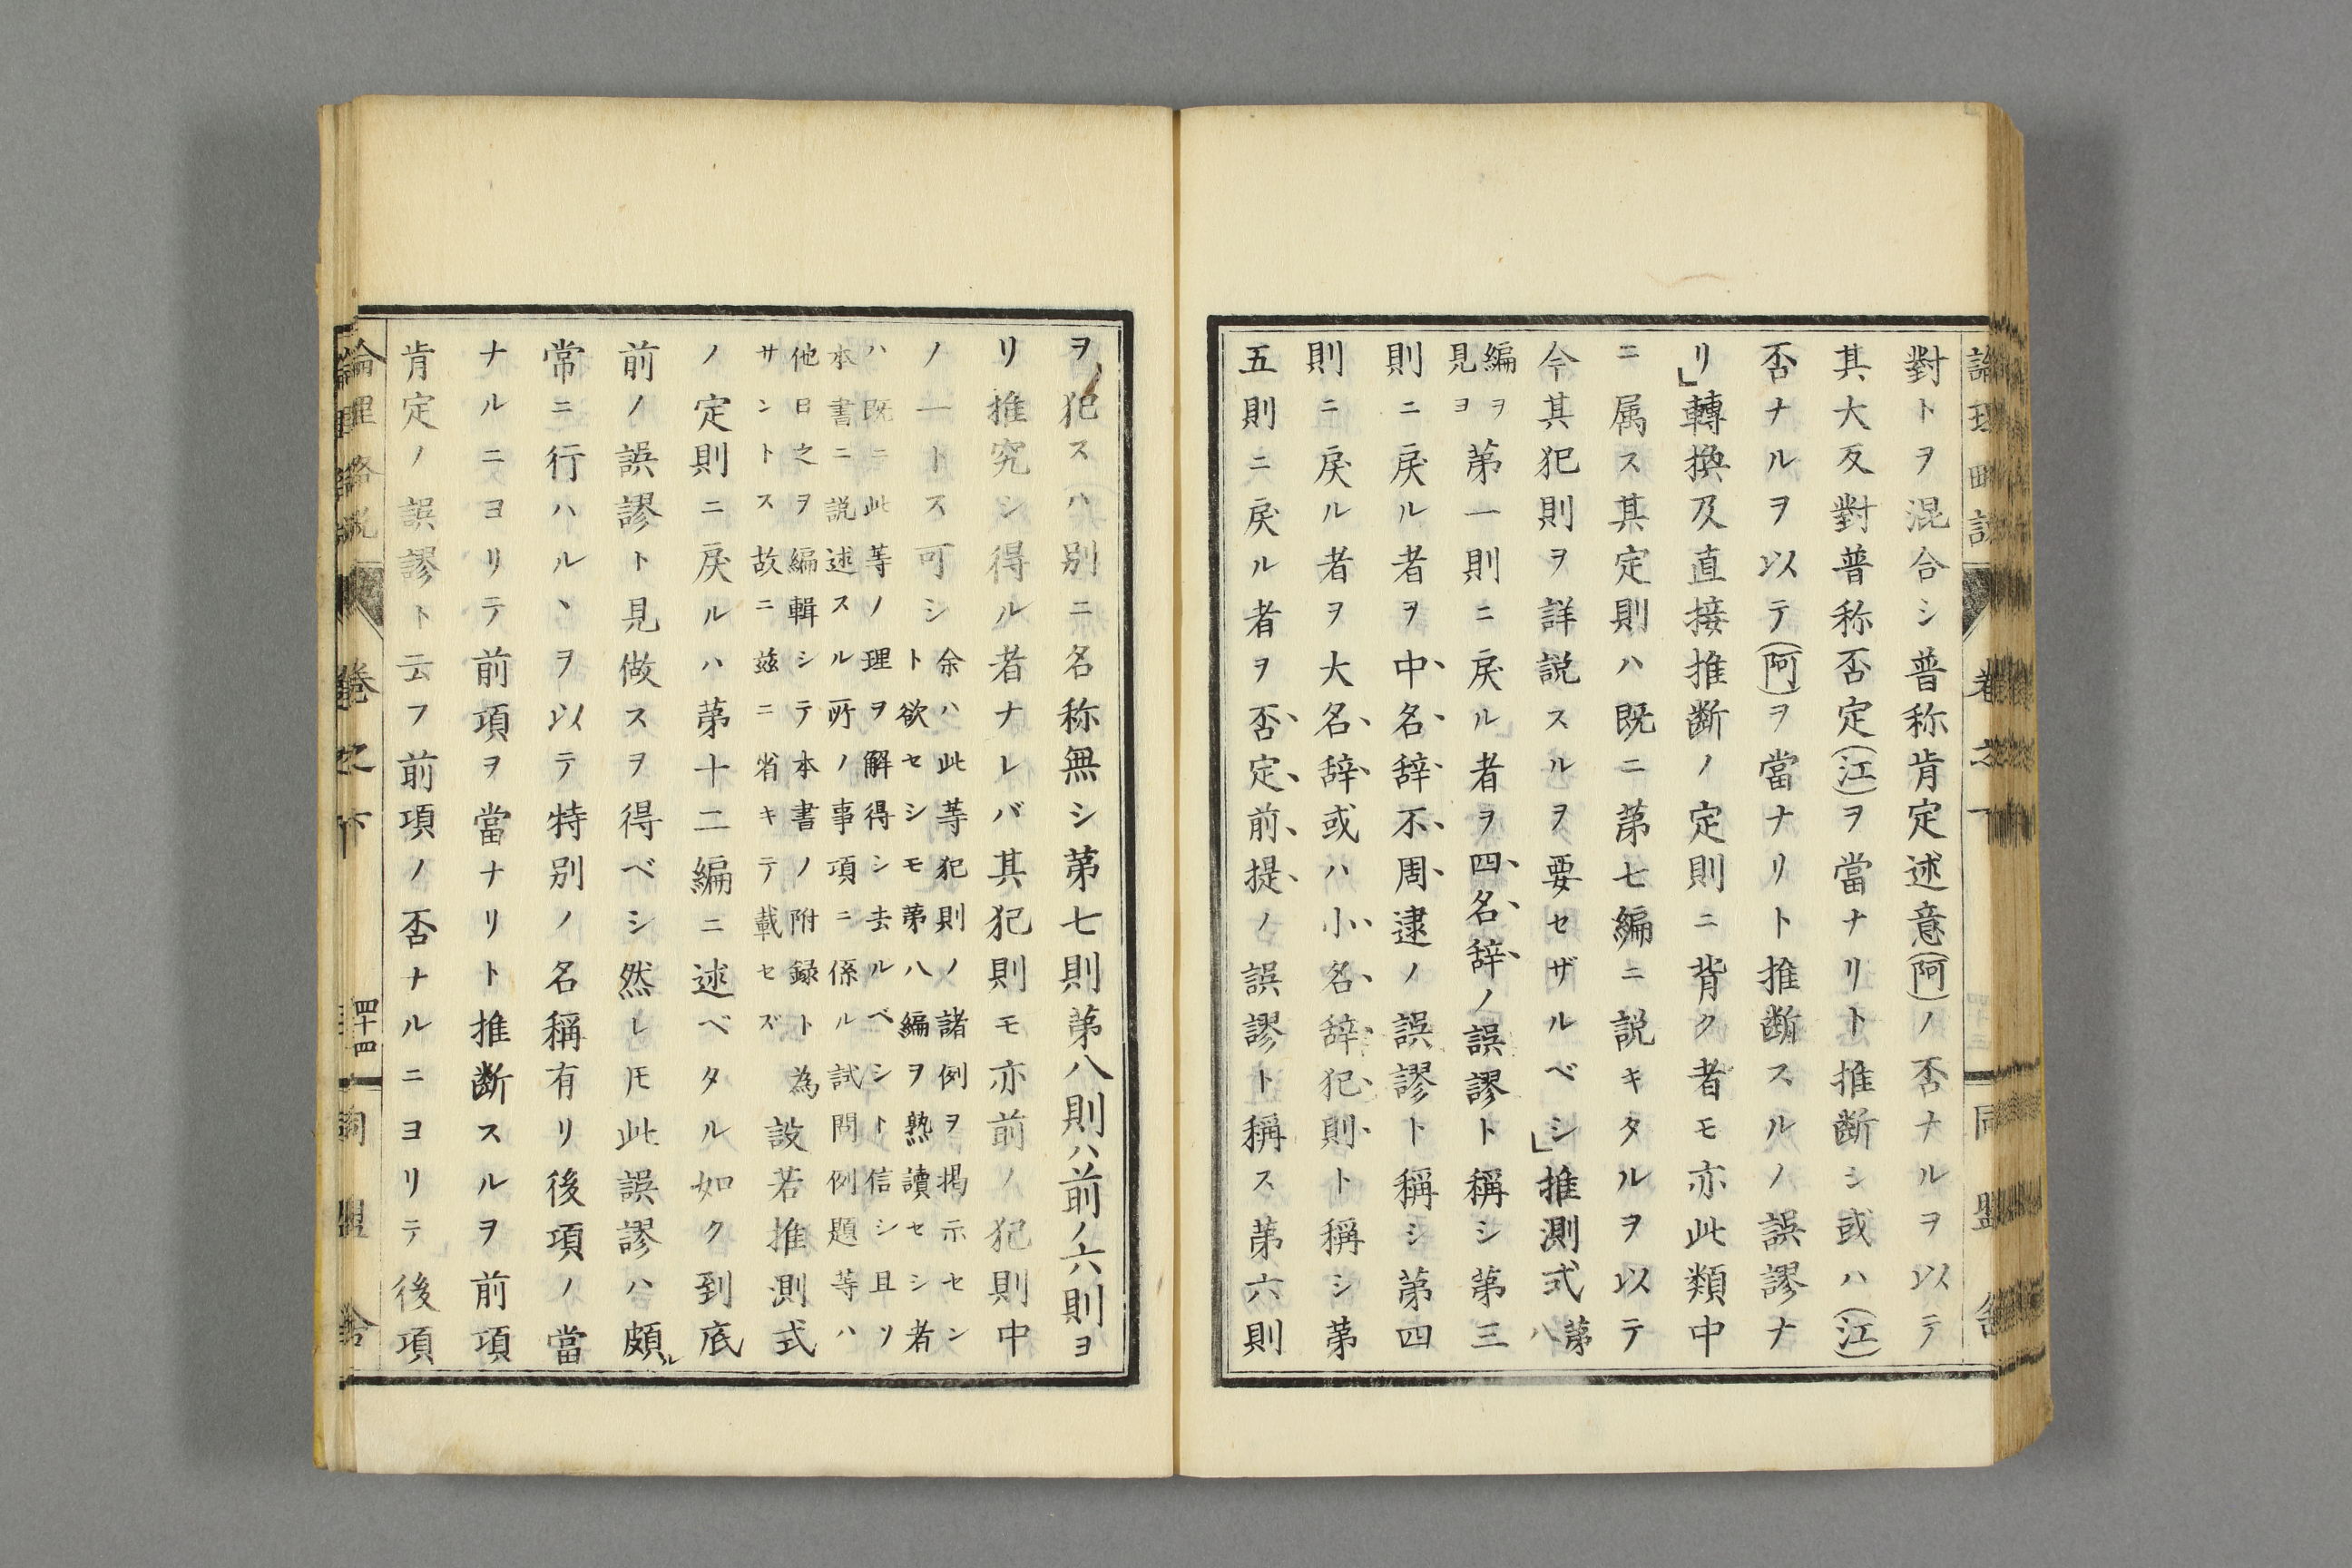 對トヲ混合シ普称肯定述意(阿)ノ否ナルヲ以テ
其大反對普称否定(江)ヲ當ナリト推断シ或ハ(江)
否ナルヲ以テ(阿)ヲ當ナリト推断スルノ誤謬ナ
リ」轉換及直接推断ノ定則ニ背ク者モ亦此類中
ニ属ス其定則ハ既ニ第七編ニ説キタルヲ以テ
今其犯則ヲ詳説スルヲ要セザルベシ」推測式第八
編ヲ見ヨ第一則ニ戻ル者ヲ四名辞ノ誤謬ト稱シ第三
則ニ戻ル者ヲ中名辞不周逮ノ誤謬ト稱シ第四
則ニ戻ル者ヲ大名辞或ハ小名辞犯則ト稱シ第
五則ニ戻ル者ヲ否定前提ノ誤謬ト稱ス第六則
ヲ犯スハ別ニ名称無シ第七則第八則ハ前ノ六則ヨ
リ推究シ得ル者ナレバ其犯則モ亦前ノ犯則中
ノ一トス可シ
余ハ此等犯則ノ諸例ヲ掲示セン
ト欲セシモ第八編ヲ熟讀セシ者
ハ既ニ此等ノ理ヲ解得シ去ルベシト信シ且ツ
本書ニ説述スル所ノ事項ニ係ル試問例題等ハ
他日之ヲ編輯シテ本書ノ附録ト為
サントス故ニ茲ニ省キテ載セズ
設若推測式
ノ定則ニ戻ルハ第十二編ニ述ベタル如ク到底
前ノ誤謬ト見做スヲ得ベシ然レ𪜈此誤謬ハ頗ル
常ニ行ハルヽヲ以テ特別ノ名稱有リ後項ノ當
ナルニヨリテ前項ヲ當ナリト推断スルヲ前項
肯定ノ誤謬ト云フ前項ノ否ナルニヨリテ後項
論理略説 巻之下 四十四 同盟舎